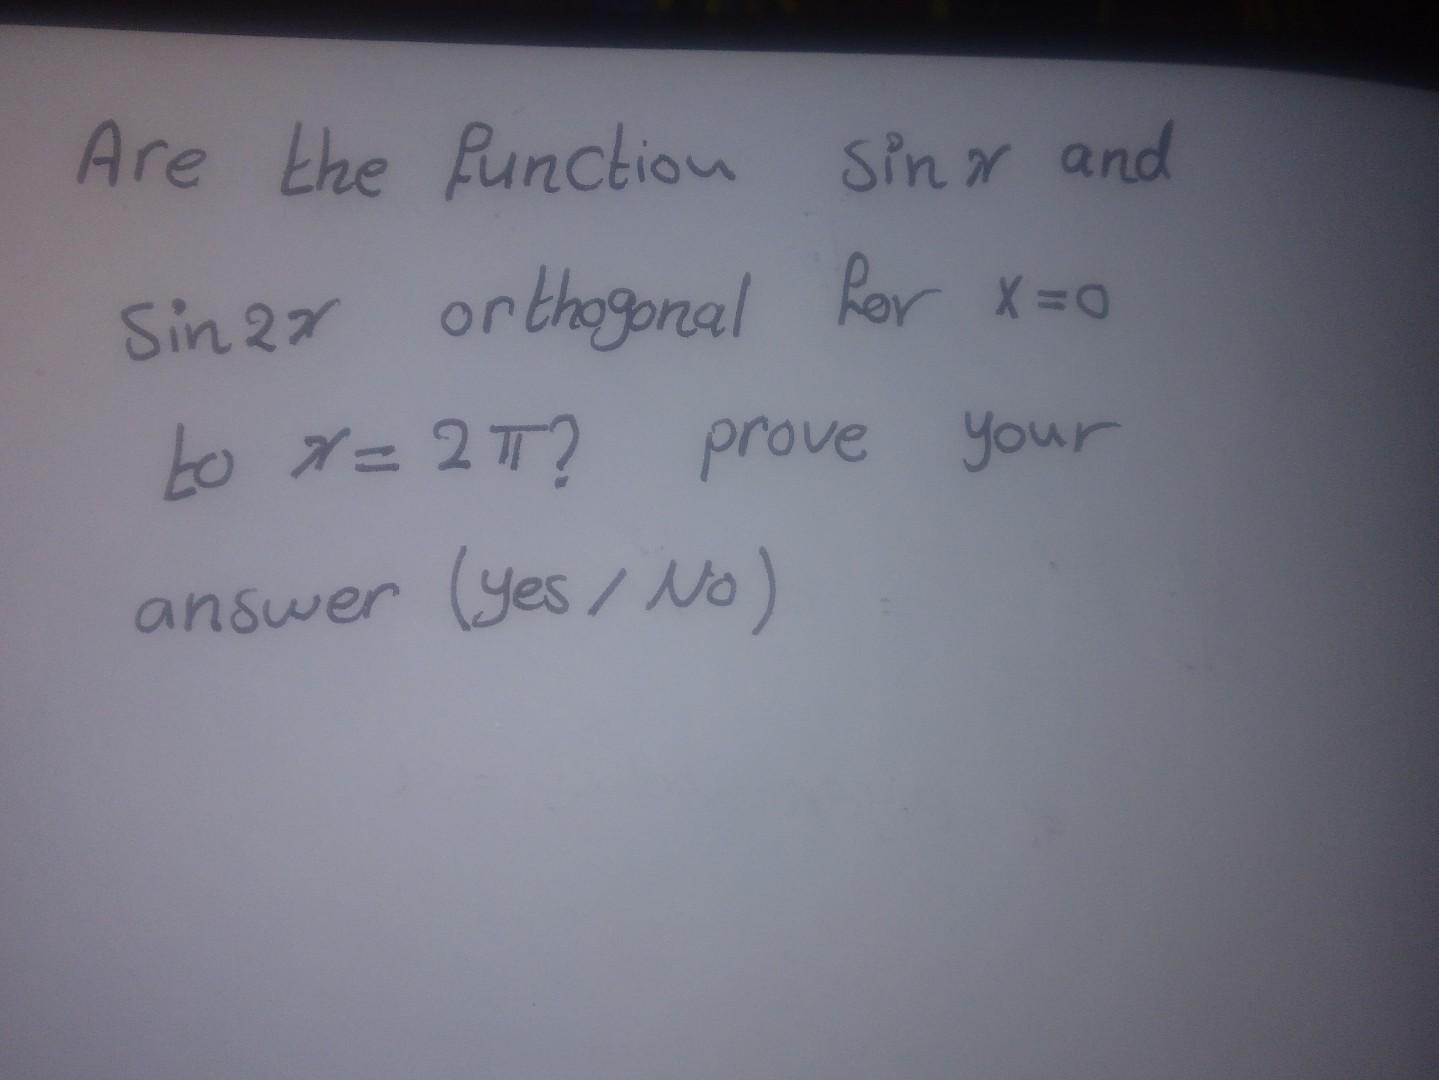 Are the function sin x and
Sin 2x orthogonal for x=0
to x= 2π? prove your
answer (yes / No)